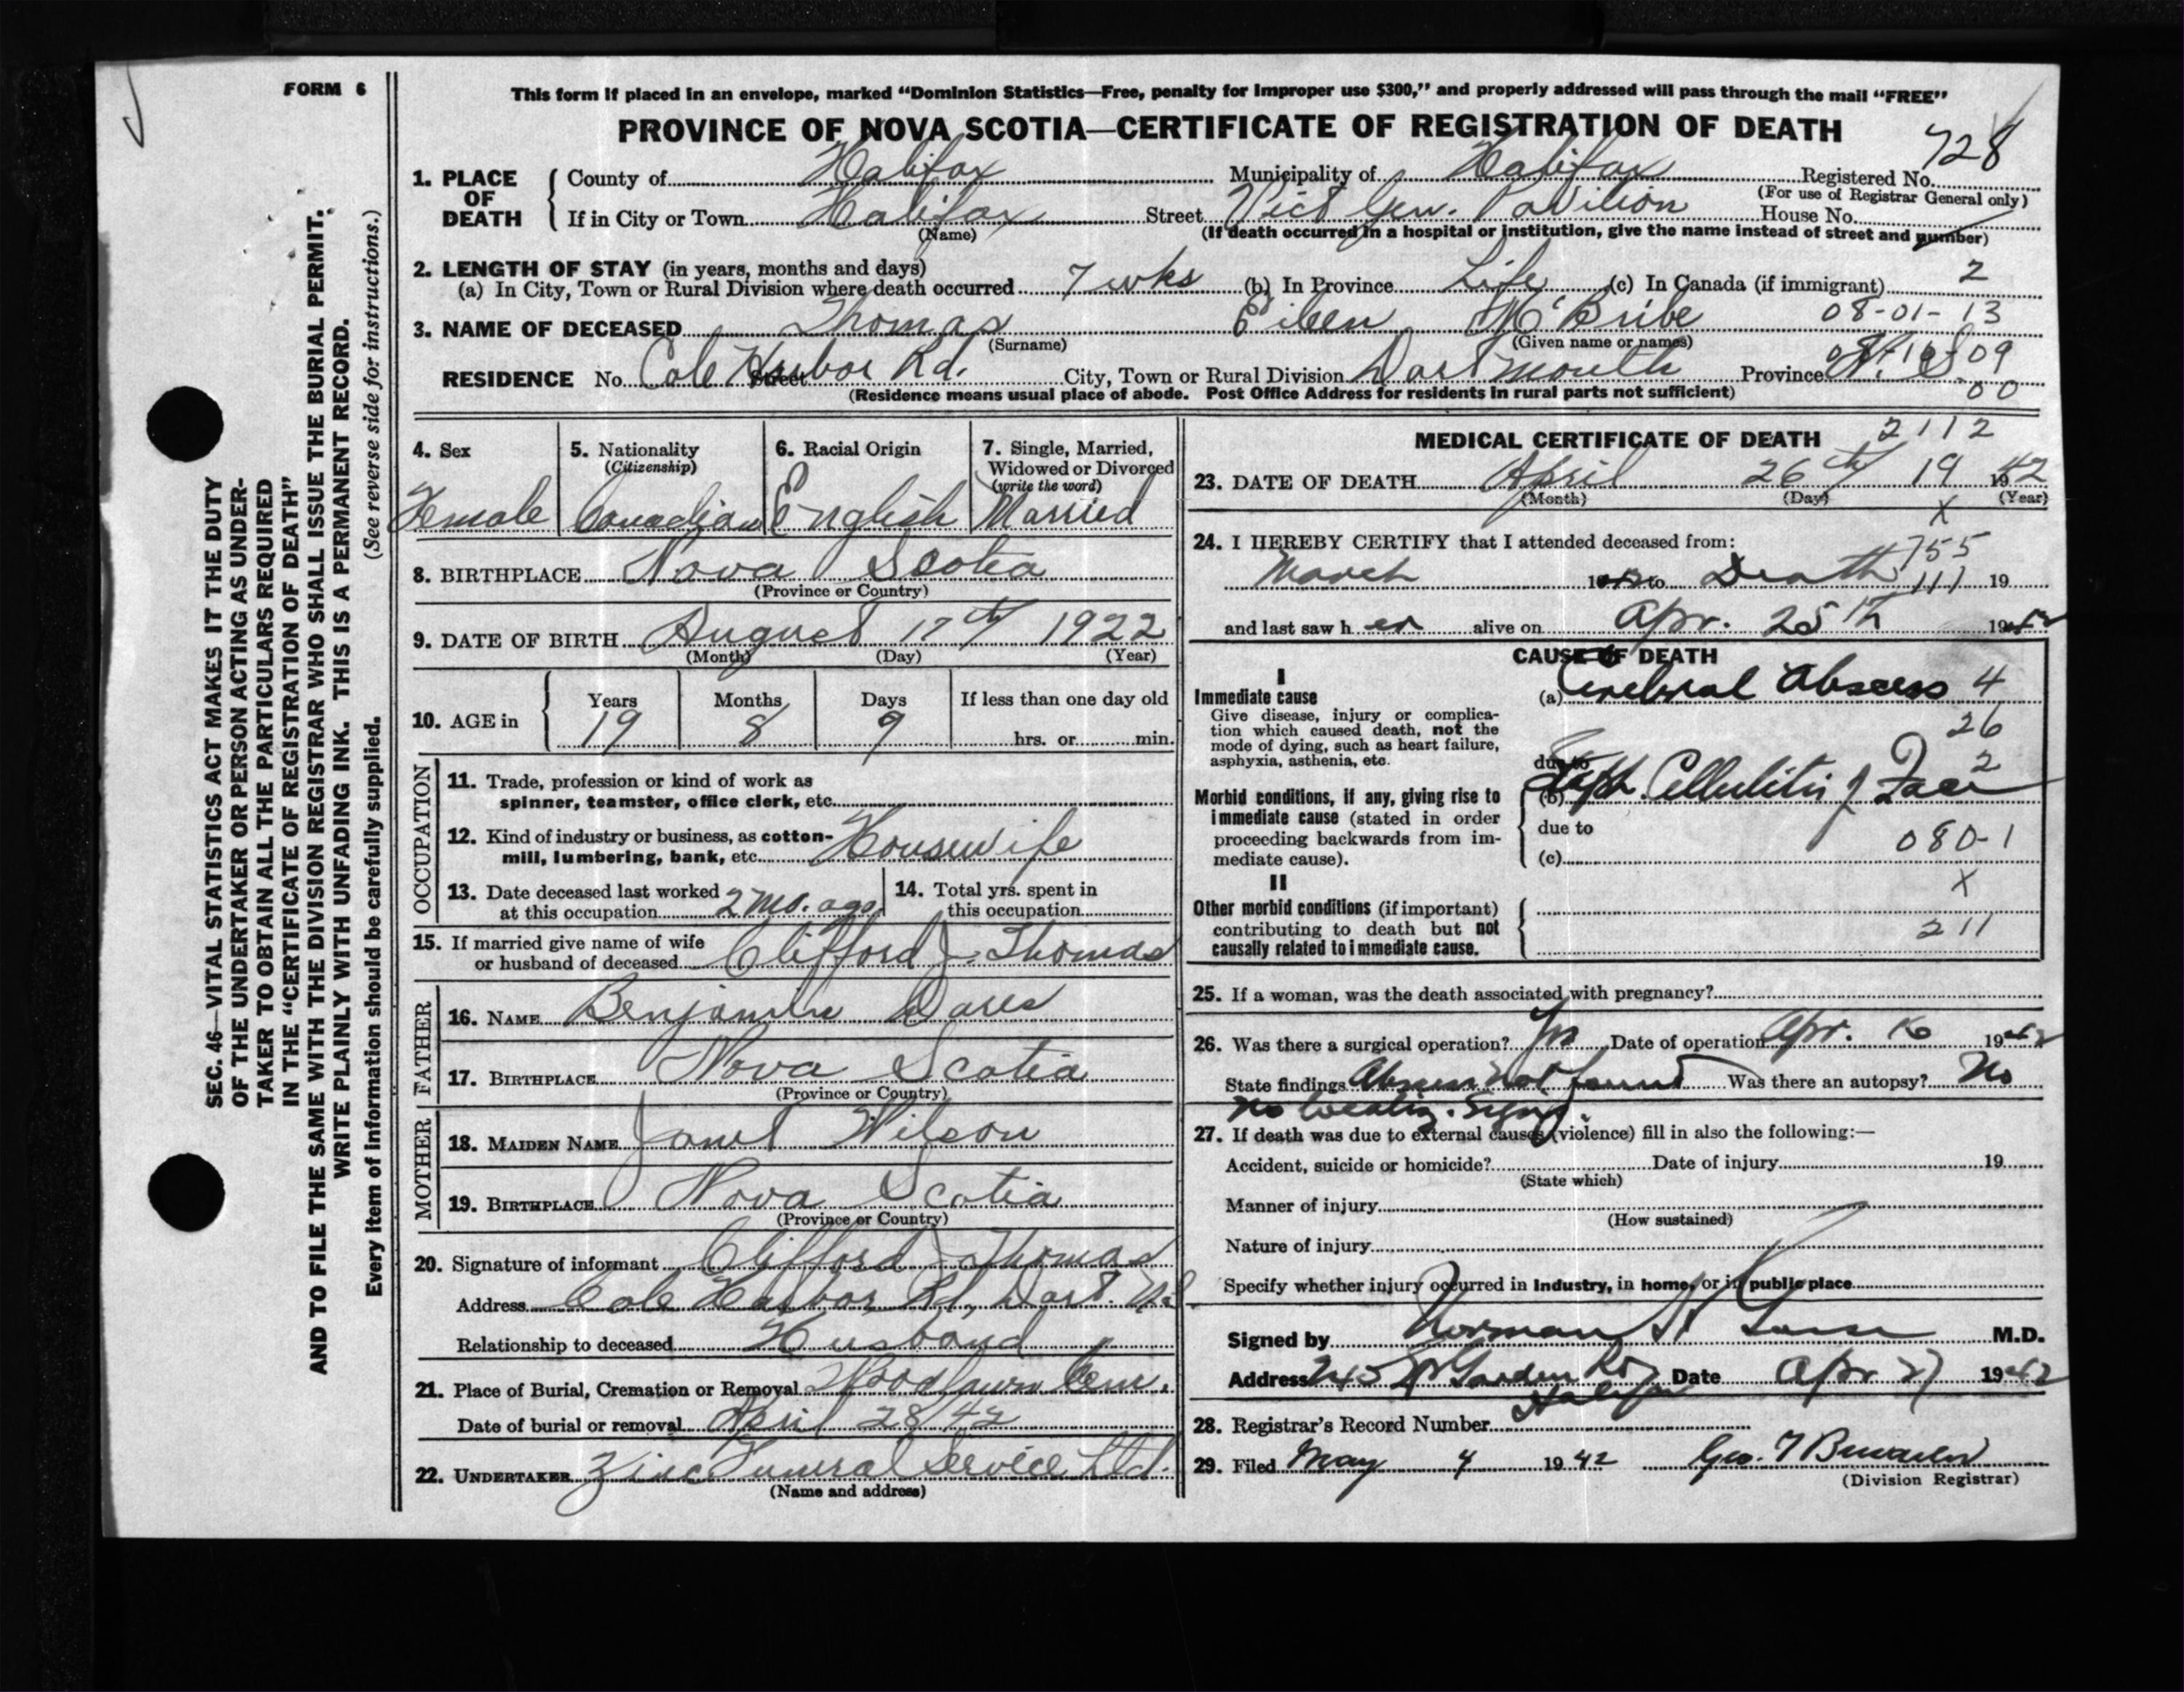 FORM 6
This form if placed in an envelope, marked “Dominion Statistics—Free, penalty for improper use $300,” and properly addressed will pass through the mail “FREE”
PROVINCE OF NOVA SCOTIA—CERTIFICATE OF REGISTRATION OF DEATH
728
1. PLACE OF DEATH { County of Halifax Municipality of Halifax Registered No.
(For use of Registrar General only)
If in City or Town Halifax Street Vict Gen. Pavilion House No.
(Name) (If death occurred in a hospital or institution, give the name instead of street and number)
2. LENGTH OF STAY (in years, months and days)
(a) In City, Town or Rural Division where death occurred 7 wks (b) In Province Life (c) In Canada (if immigrant) 2
3. NAME OF DECEASED Thomas Eileen 08-01-13
(Surname) (Given name or names)
RESIDENCE No. Cole Harbor Rd. Street City, Town or Rural Division Dartmouth Province N.S. 09
(Residence means usual place of abode. Post Office Address for residents in rural parts not sufficient) 00
4. Sex 5. Nationality (Citizenship) 6. Racial Origin 7. Single, Married, Widowed or Divorced (write the word)
Female Canadian English Married
8. BIRTHPLACE Nova Scotia
(Province or Country)
9. DATE OF BIRTH August 17th 1922
(Month) (Day) (Year)
10. AGE in { Years Months Days If less than one day old
19 8 9 hrs. or min.
OCCUPATION
11. Trade, profession or kind of work as
spinner, teamster, office clerk, etc.
12. Kind of industry or business, as cotton-
mill, lumbering, bank, etc. Housewife
13. Date deceased last worked at this occupation 2 mo. ago
14. Total yrs. spent in this occupation
15. If married give name of wife
or husband of deceased Clifford J. Thomas
FATHER
16. NAME Benjamin Dares
17. BIRTHPLACE Nova Scotia
(Province or Country)
MOTHER
18. MAIDEN NAME Janet Wilson
19. BIRTHPLACE Nova Scotia
(Province or Country)
20. Signature of informant Clifford J Thomas
Address Cole Harbor Rd, Dart. NS
Relationship to deceased Husband
21. Place of Burial, Cremation or Removal Woodlawn Cem.
Date of burial or removal April 28/42
22. UNDERTAKER Zinc Funeral Service Ltd.
(Name and address)
MEDICAL CERTIFICATE OF DEATH 2112
23. DATE OF DEATH April 26th 19 42
(Month) (Day) (Year)
X
24. I HEREBY CERTIFY that I attended deceased from: 755
March 19 to Death 111 19
and last saw her alive on Apr. 25th 1942
CAUSE OF DEATH
I
Immediate cause (a) Cerebral Abscess 4
Give disease, injury or complica-
tion which caused death, not the
mode of dying, such as heart failure,
asphyxia, asthenia, etc.
26
due to 2
Morbid conditions, if any, giving rise to
immediate cause (stated in order
proceeding backwards from im-
mediate cause).
(b) Staph. Cellulitis of Face
due to
(c) 080-1
II X
Other morbid conditions (if important)
contributing to death but not
causally related to immediate cause.
211
25. If a woman, was the death associated with pregnancy?
26. Was there a surgical operation? Yes Date of operation Apr. 16 1942
State findings Abscess not found Was there an autopsy? No
No localiz. signs.
27. If death was due to external causes (violence) fill in also the following:—
Accident, suicide or homicide? Date of injury 19
(State which)
Manner of injury
(How sustained)
Nature of injury
Specify whether injury occurred in Industry, in home, or in public place
Signed by Norman H M.D.
Address 245 Sp Garden Rd Date Apr 27 1942
Halifax
28. Registrar’s Record Number
29. Filed May 4 1942 Geo. T
(Division Registrar)
SEC. 46—VITAL STATISTICS ACT MAKES IT THE DUTY
OF THE UNDERTAKER OR PERSON ACTING AS UNDER-
TAKER TO OBTAIN ALL THE PARTICULARS REQUIRED
IN THE “CERTIFICATE OF REGISTRATION OF DEATH”
AND TO FILE THE SAME WITH THE DIVISION REGISTRAR WHO SHALL ISSUE THE BURIAL PERMIT.
WRITE PLAINLY WITH UNFADING INK. THIS IS A PERMANENT RECORD.
Every item of information should be carefully supplied. (See reverse side for instructions.)